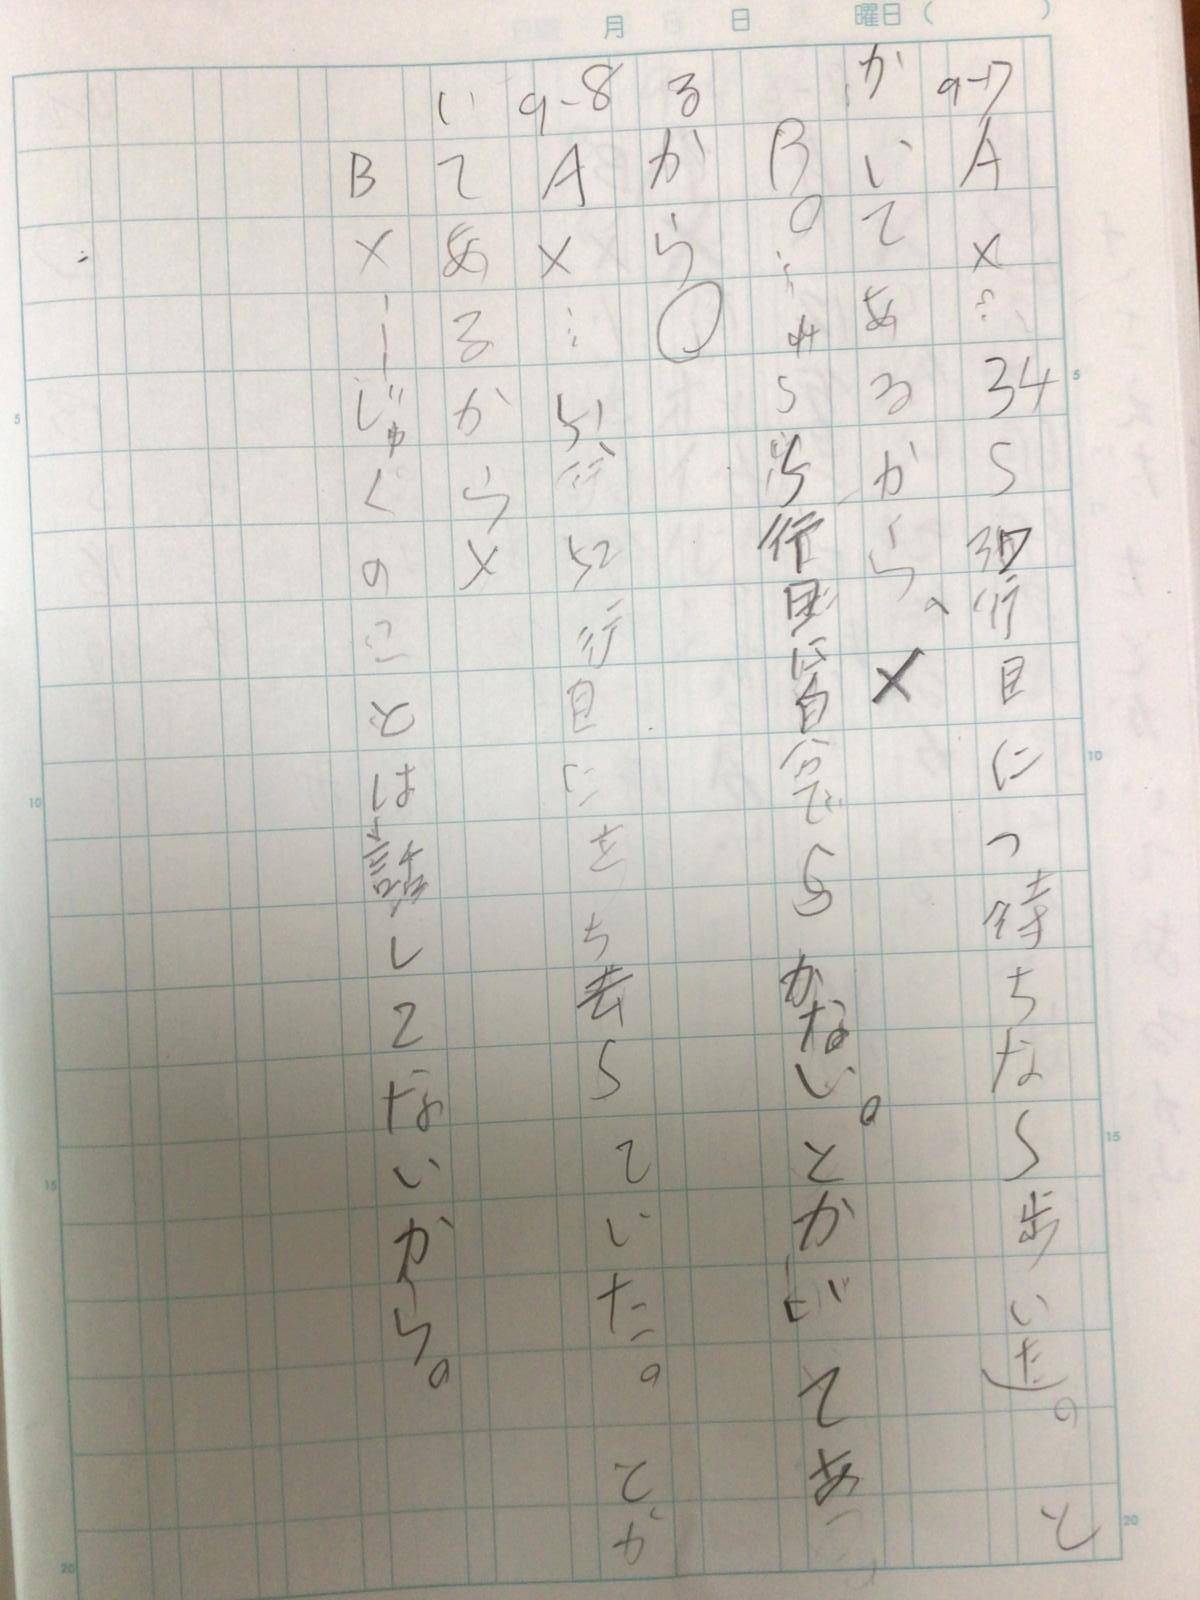 月 日 曜日( )
9-17 A ×…34 5 37行目に 待ちなら歩いた。と
かいてあるから。×
B ○… 行目に自分で かない。とかいてあ
るから○
9-8 A ×…51行 52行目に ち去 ていた。とか
いてあるから×
B ×…じゅくのことは話してないから。
5
10
15
20
5
10
15
20